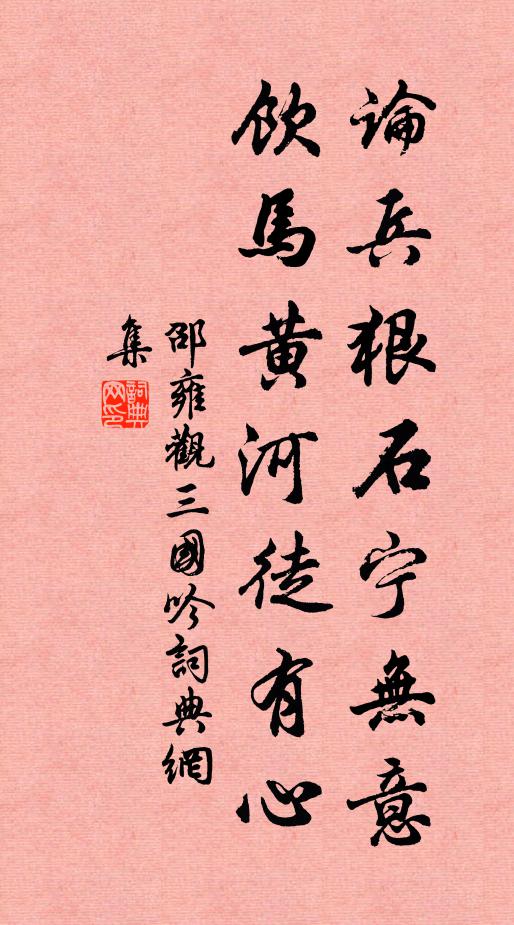 論兵狠石宁無意
飲馬黄河徒有心
邵雍觀三國吟詞典網
集
詞典
网印